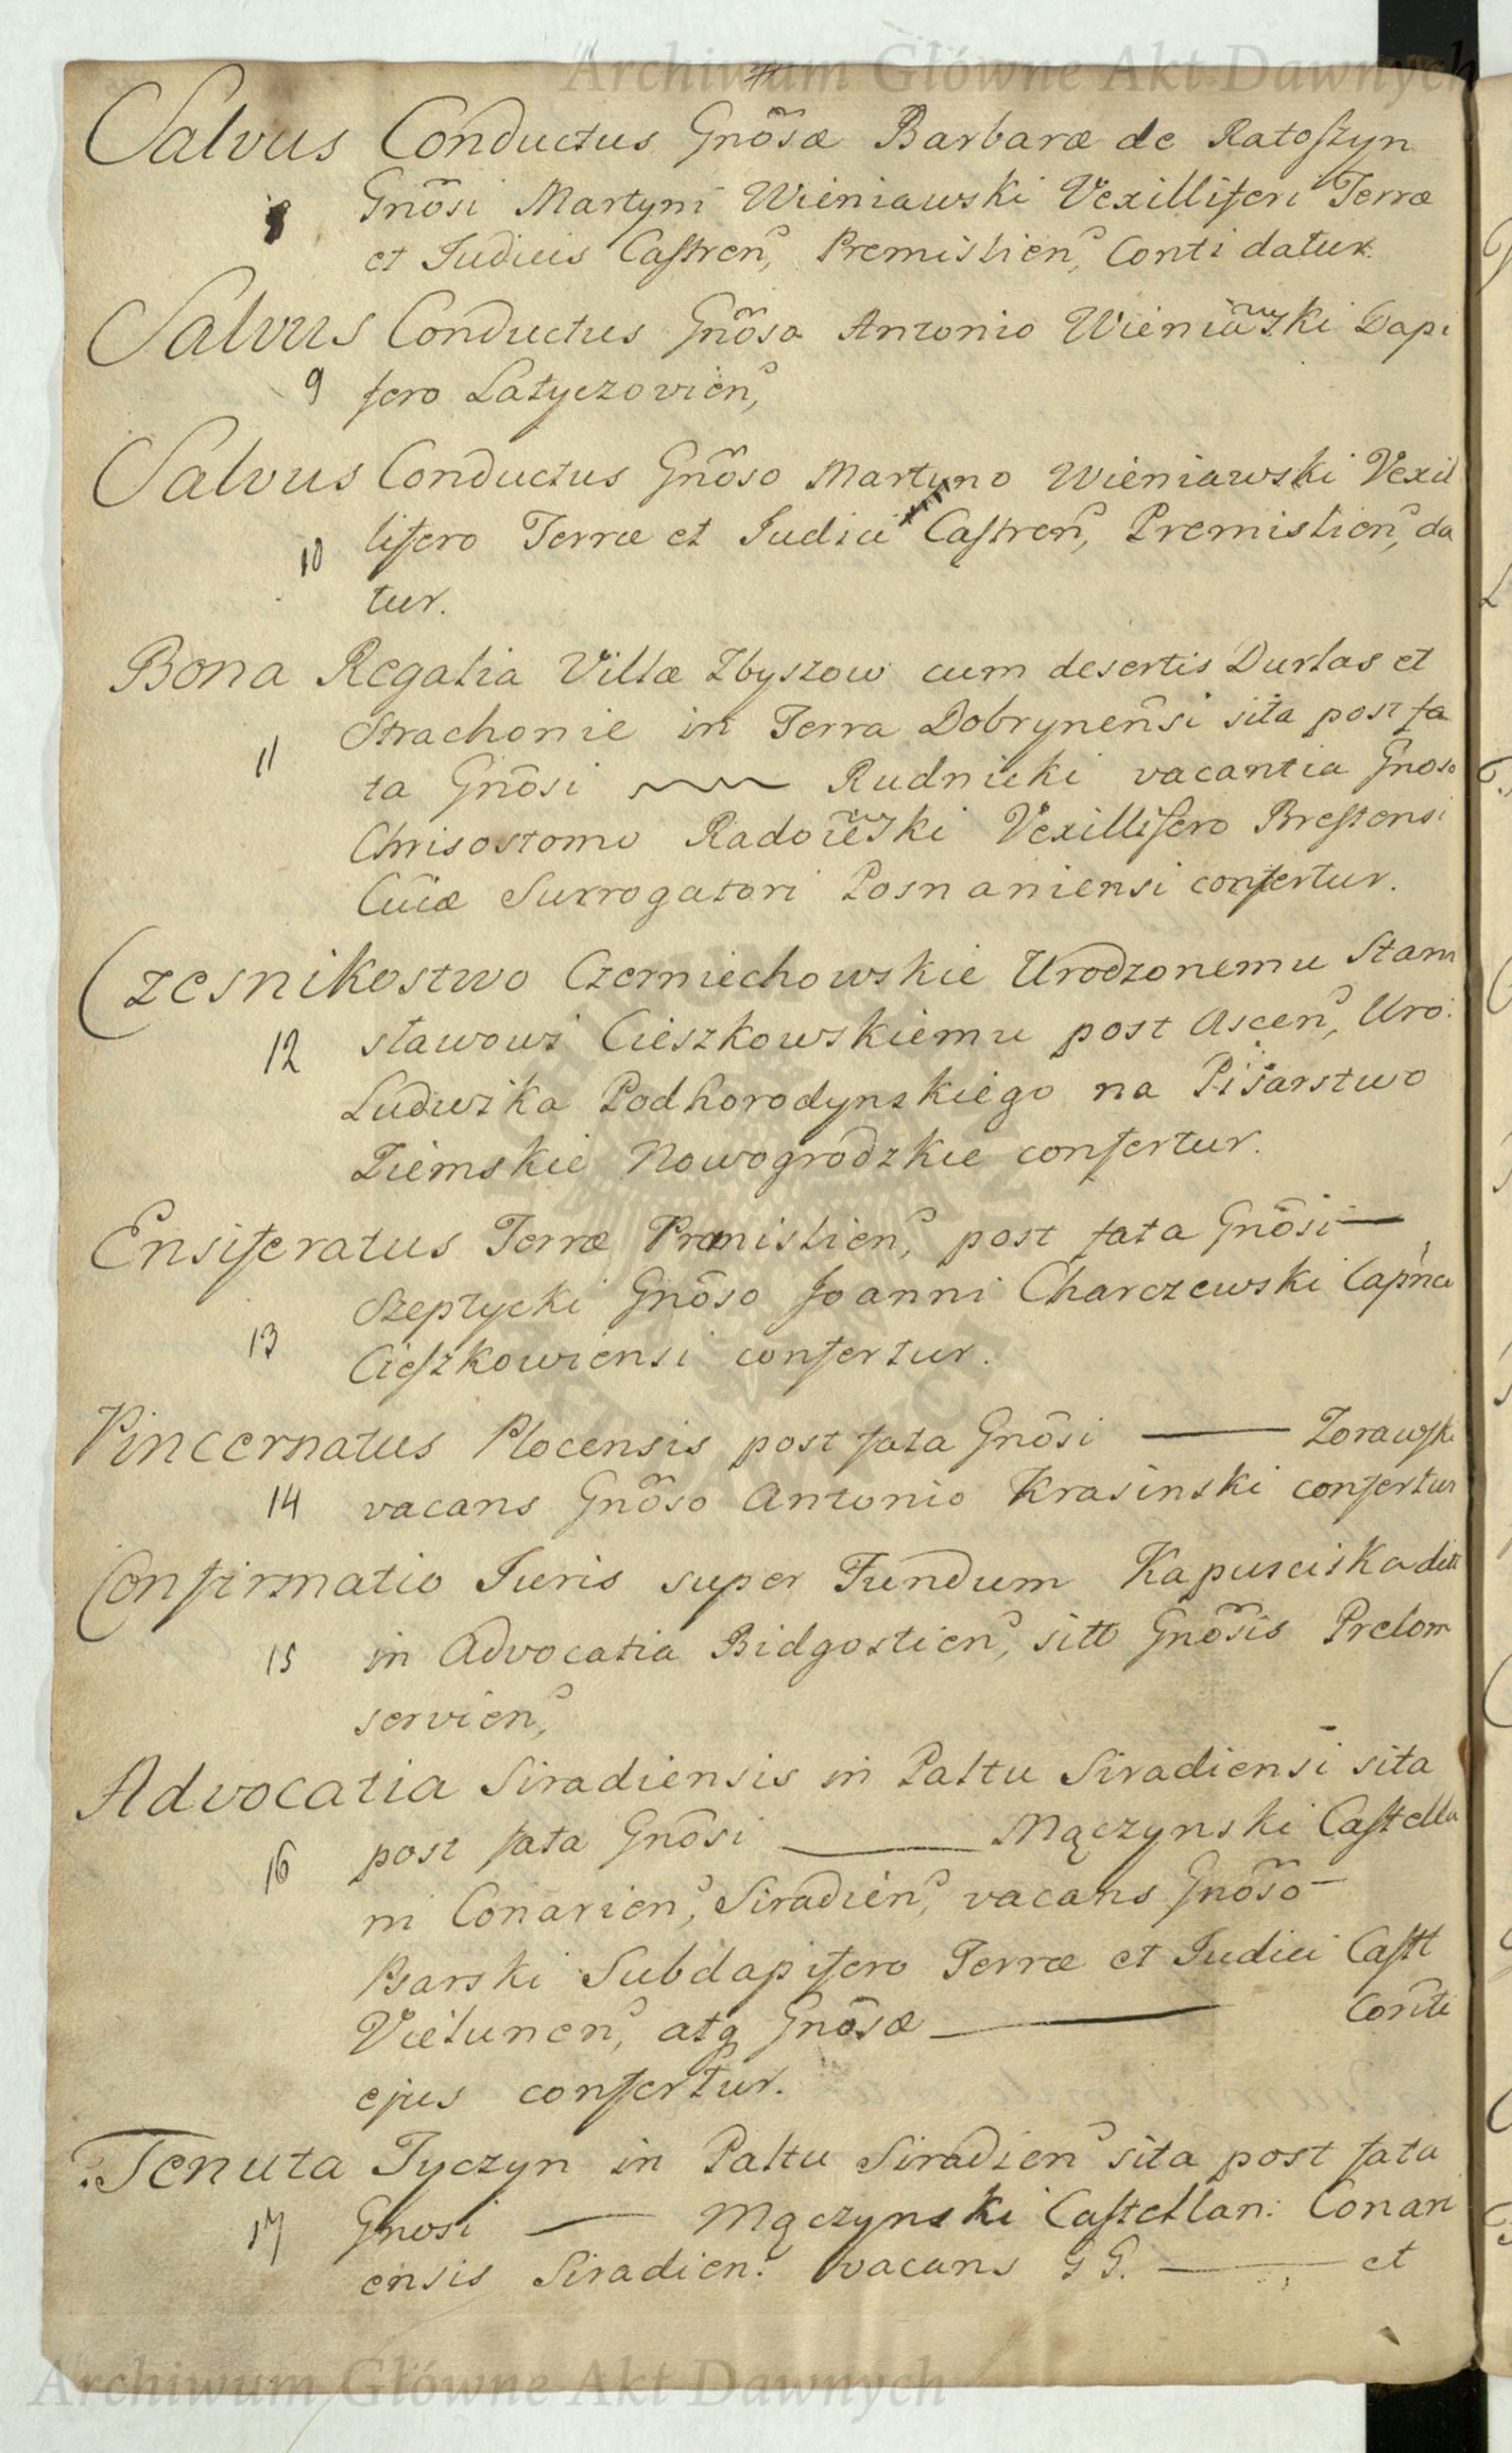 Archiwum Główne Akt Dawnych
Salvus Conductus Gnõsæ Barbaræ de Ratoszyn
8 Gnõsi Martyni Wieniawski Vexilliferi Terræ
et Judicis Castren, Premislien, Conti datur.
Salvus Conductus Gnõso Antonio Wieniawski Dapi
9 fero Latyczovien,
Salvus Conductus Gnõso Martyno Wieniawski Vexil
10 lifero Terræ et Judici Castren, Premislien, da
tur.
Bona Regalia Villæ Zbyszow cum desertis Durlas et
Strachonie in Terra Dobrynensi sita post fa
11 ta Gnõsi Rudnicki vacantia Gnoso
Chrisostomo Radojewski Vexillifero Brestensi
Cuiæ Surrogatori Posnaniensi confertur.
Czesnikostwo Czerniechowskie Urodzonemu Stani
12 sławowi Cieszkowskiemu post Ascen, Uro:
Ludwika Podhorodynskiego na Pisarstwo
Ziemskie Nowogrodzkie confertur.
Ensiferatus Terræ Premislien, post fata Gnõsi —
Szeptycki Gnõso Joanni Charczewski Capñeo
13 Cieszkowiensi confertur.
Pincernatus Plocensis post fata Gnõsi — Zorawski
14 vacans Gnõso Antonio Krasinski confertur
Confirmatio Juris super Fundum Kapusciska dict
15 in Advocatia Bidgostien, sitt Gnõsis Prelom
servien,
Advocatia Siradiensis in Paltu Siradiensi sita
16 post fata Gnõsi — Mączynski Castella
ni Conarien, Siradien, vacans Gnõso —
Psarski Subdapifero Terræ et Judici Castt
Vielunen, atq Gnõsæ — Conti
ejus confertur.
Tenuta Tyczyn in Paltu Siradien sita post fata
17 Gnosi — Mączynski Castellan: Conari
ensis Siradien: vacans G G. — et
Archiwum Główne Akt Dawnych